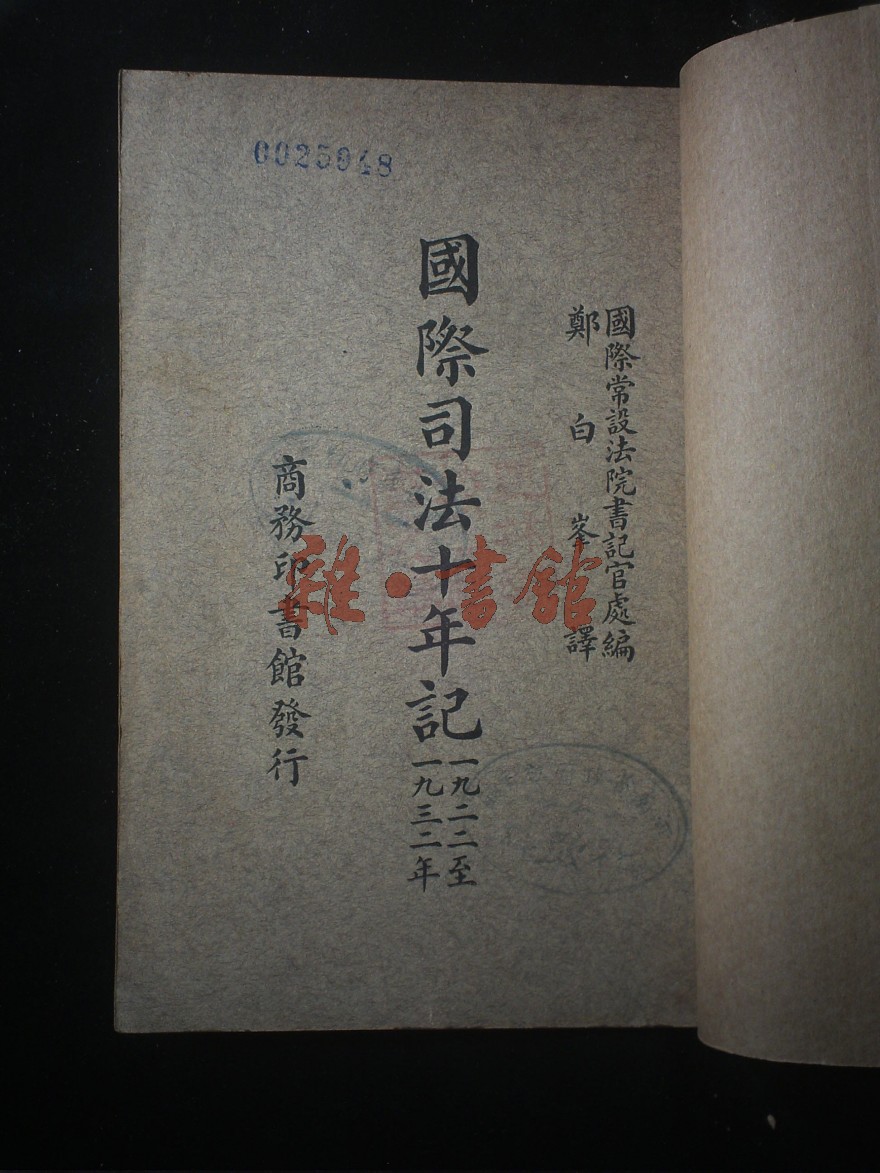 0025048
國際常設法院書記官處編
鄭白峯譯
國際司法十年記
一九二二至
一九三二年
商務印書館發行
雜·書館